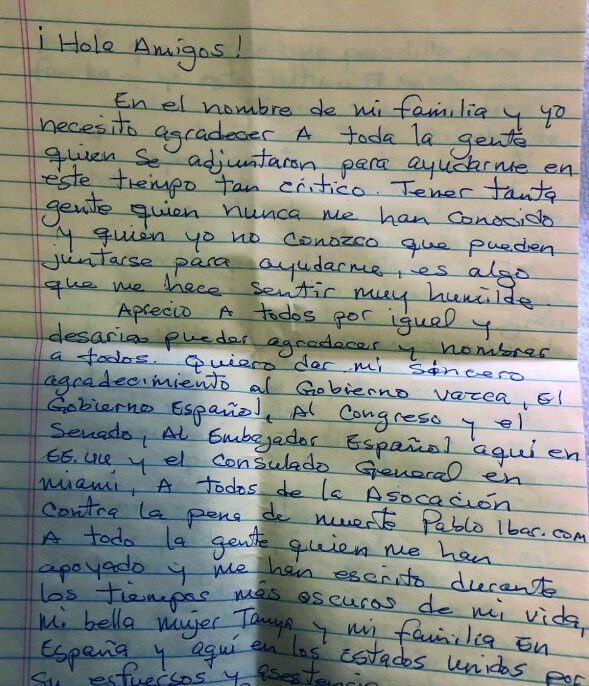 ¡ Hola Amigos!
En el nombre de mi familia y yo
necesito agradecer A toda la gente
quien se adjuntaron para ayudarme en
este tiempo tan critico. Tener tanta
gente quien nunca me han conocido
y quien yo no conozco que pueden
juntarse para ayudarme, es algo
que me hace sentir muy humilde.
Aprecio A todos por igual y
desaria pueder agradecer y nombrar
a todos. Quiero dar mi sincero
agradecimiento al Gobierno vazca, El
Gobierno Español, Al Congreso y el
Senado, Al Embajador Español aquí en
EE.UU y el Consulado General en
miami, A todos de la Asocación
Contra la pena de muerte Pablo Ibar.com
A todo la gente quien me han
apoyado y me han escrito durante
los tiempos más oscuros de mi vida,
Mi bella mujer Tanya y mi familia En
España y aquí en los Estados Unidos por
su esfuersos y asestencia